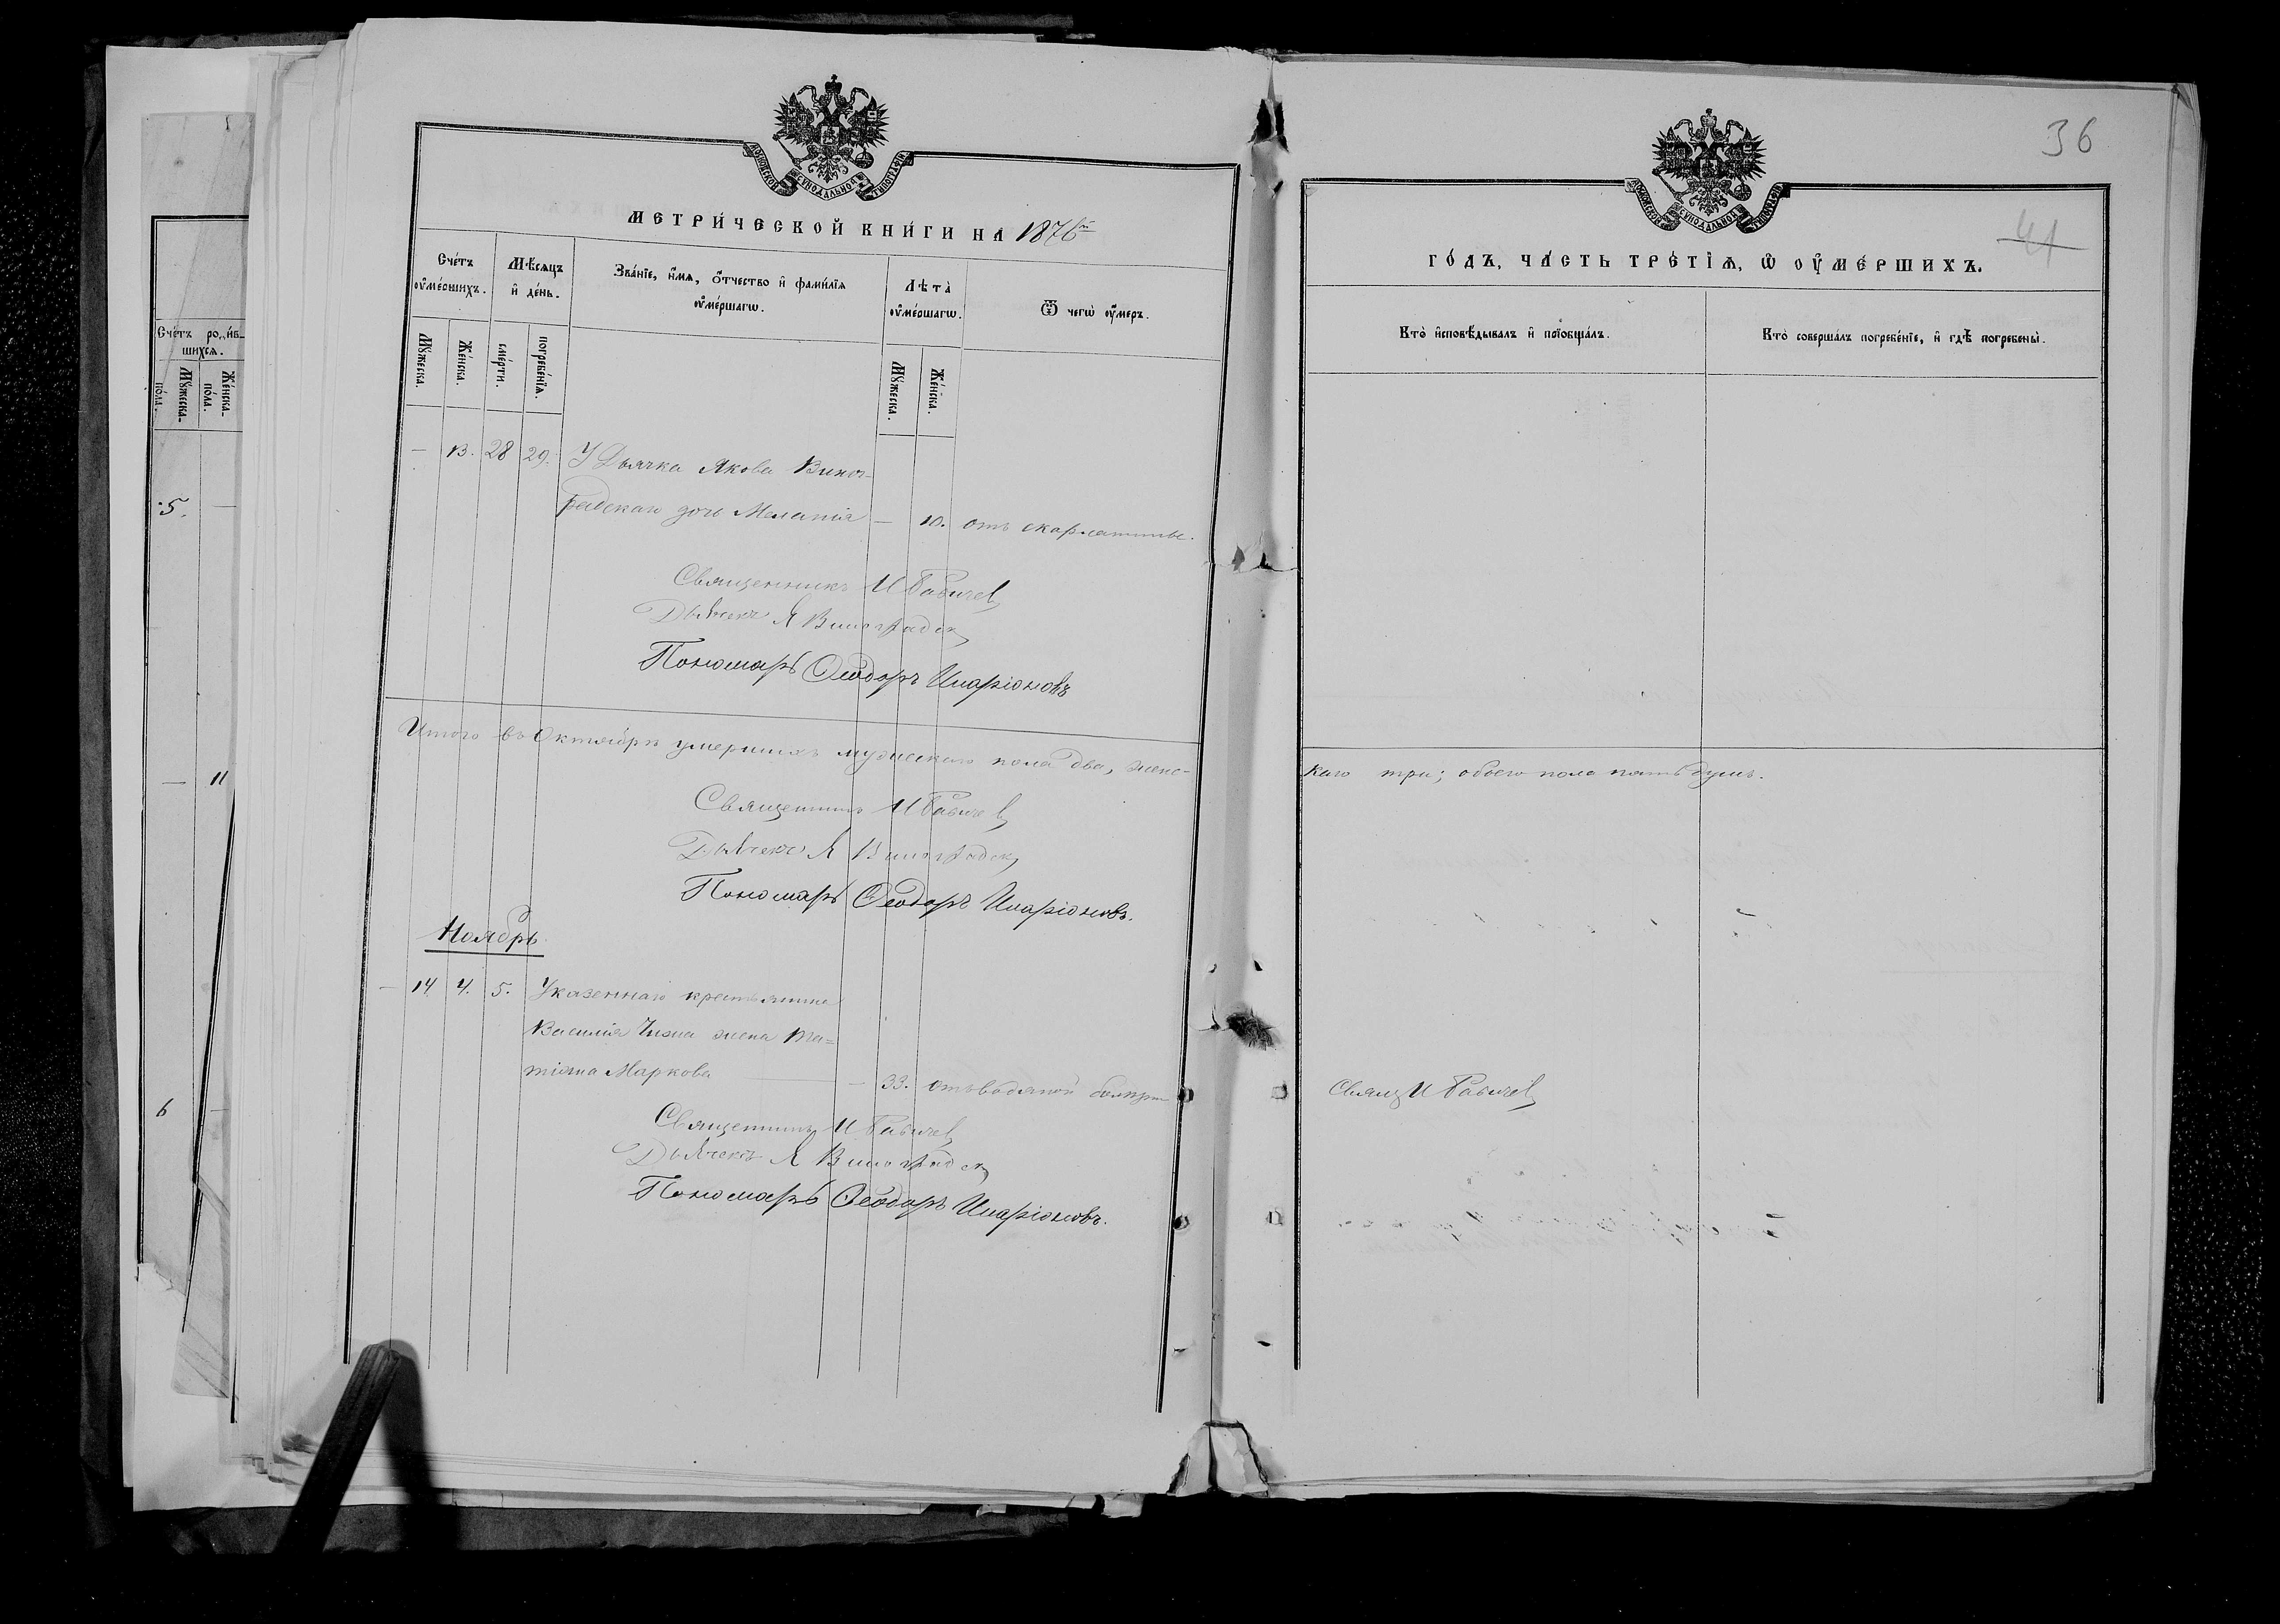 МОСКОВСКОЙ СѴНОДАЛЬНОЙ ТИПОГРАФІИ
МЕТРИ́ЧЕСКОЙ КНИ́ГИ НА 1876й
Сче́тъ оу҆ме́ршихъ.
Мѣ́сяцъ и҆ де́нь.
Зва́нїе, и҆́мѧ, ѻ҆́тчество и҆ фами́лїѧ оу҆ме́ршагѡ.
Лѣта̀ оу҆ме́ршагѡ.
Ѿ чегѡ̀ оу҆́меръ.
Мꙋ́жеска.
Же́нска.
сме́рти.
погребе́нїѧ.
Мꙋ́жеска.
Же́нска.
— 13. 28 29. У Дьячка Якова Виног-
радскаго дочь Меланія — 10. отъ скарлатины.
Священникъ И Бабичев
Дьячекъ Я Виноградск
Пономарь Ѳеодоръ Иларіоновъ
Итого въ Октябрѣ умершихъ мужескаго пола два, женс-
Священникъ И Бабичев
Дьячекъ Я Виноградск
Пономарь Ѳеодоръ Иларіоновъ.
Ноябрь
— 14 4. 5. Указеннаго крестьянина
Василія жена Та-
тіана Маркова — 33. отъ водяной болѣзни
Священникъ И Бабичев
Дьячекъ Я Виноградск
Пономарь Ѳеодоръ Иларіоновъ.
36
41
МОСКОВСКОЙ СѴНОДАЛЬНОЙ ТИПОГРАФІИ
ГО́ДЪ, ЧА́СТЬ ТРЕ́ТЇѦ, Ѡ҆ ОУ҆МЕ́РШИХЪ.
Кто̀ и҆сповѣ́дывалъ и҆ прїобща́лъ.
Кто̀ соверша́лъ погребе́нїе, и҆ гдѣ̀ погребены̀.
каго три; обоего пола пять душъ.
Свящ И Бабичев
Сче́тъ роди́в-
шихсѧ.
Мꙋ́жеска-
по́ла.
Же́нска-
по́ла.
5. —
— 11
6 —